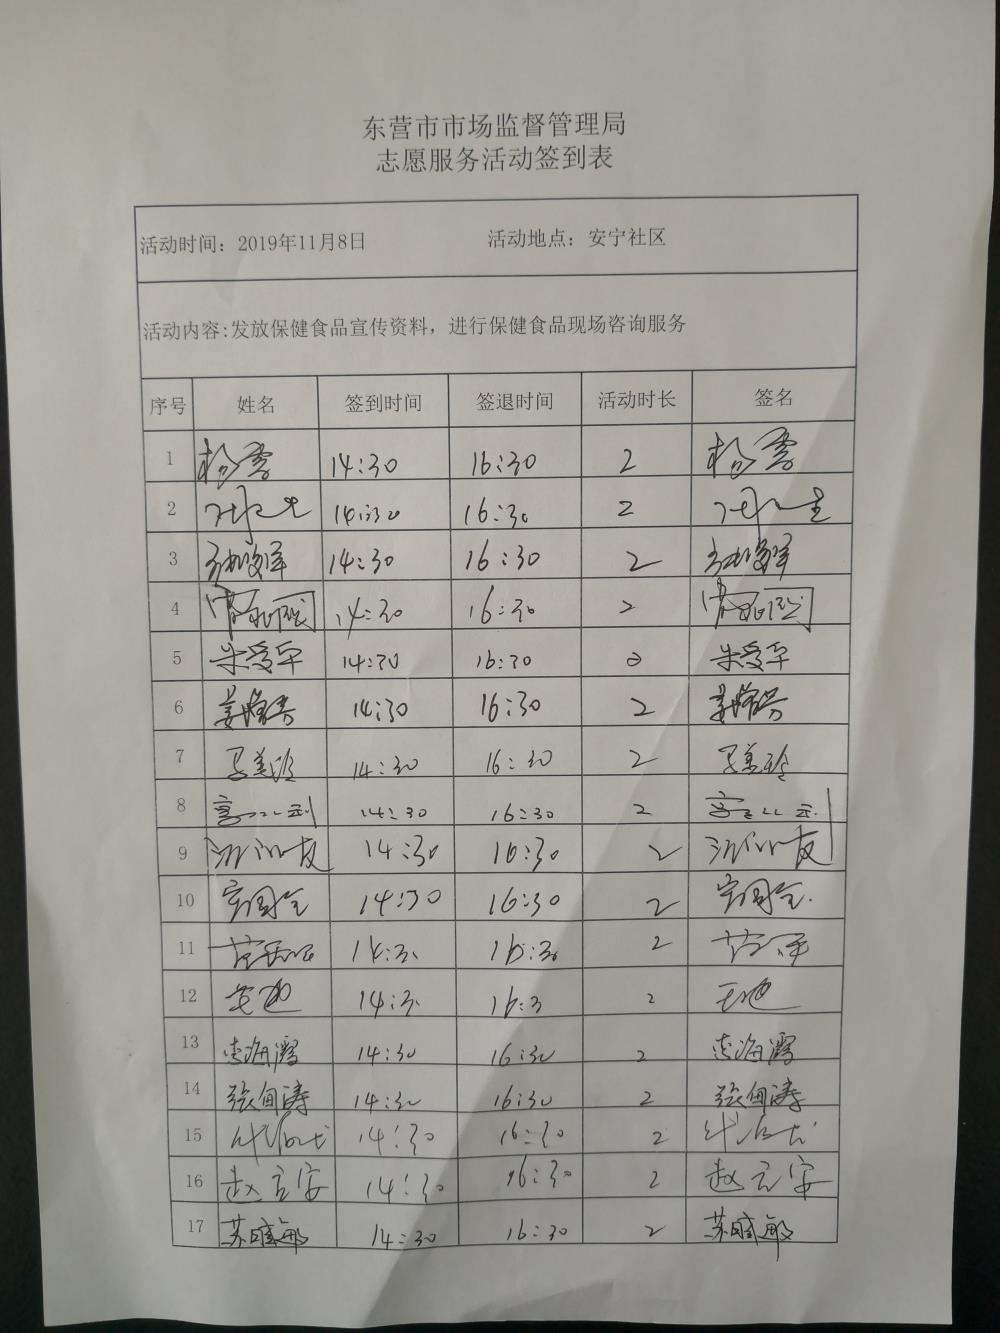 东营市市场监督管理局
志愿服务活动签到表
活动时间：2019年11月8日 活动地点：安宁社区
活动内容:发放保健食品宣传资料，进行保健食品现场咨询服务
序号 姓名 签到时间 签退时间 活动时长 签名
1 杨雪 14:30 16:30 2 杨雪
2 14:30 16:30 2
3 14:30 16:30 2
4 14:30 16:30 2
5 朱爱军 14:30 16:30 2 朱爱军
6 14:30 16:30 2
7 马美玲 14:30 16:30 2 马美玲
8 14:30 16:30 2
9 14:30 16:30 2
10 14:30 16:30 2
11 14:30 16:30 2
12 14:3 16:3 2
13 李海霞 14:30 16:30 2 李海霞
14 张向涛 14:30 16:30 2 张向涛
15 14:30 16:30 2
16 赵立安 14:30 16:30 2 赵立安
17 苏晓敏 14:30 16:30 2 苏晓敏